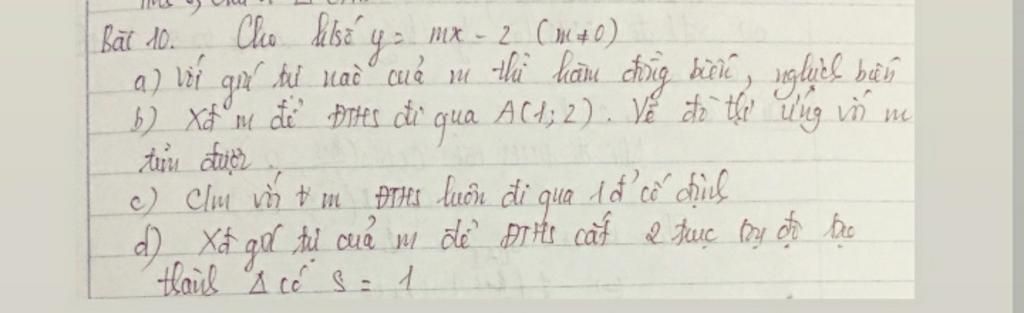 Bài 10. Cho h/số y = mx - 2 (m ≠ 0)
a) Với giá trị nào của m thì hàm đồng biến, nghịch biến
b) Xđ m để ĐTHS đi qua A(1; 2). Vẽ đồ thị ứng với m
tìm được.
c) C/m với ∀ m ĐTHS luôn đi qua 1 đ' cố định
d) Xđ giá trị của m để ĐTHS cắt 2 trục toạ độ tạo
thành Δ có S = 1